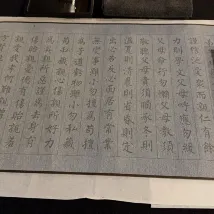 謹信汎愛眾而親仁有餘
力則學文父母呼應勿緩
父母命行勿懶父母教須
敬聽父母責須順承冬則
溫夏則凊晨則省昏則定
出必告反必面居有常業
無變事雖小勿擅為苟擅
為子道虧物雖小勿私藏
苟私藏親心傷親所好力
為具親所惡謹為去身有
傷貽親憂德有傷貽親羞
親愛我孝何難親